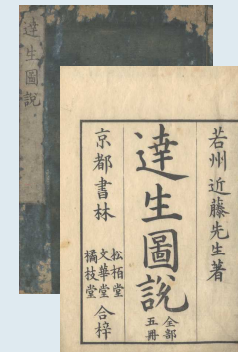 達生圖説
若州 近藤先生著
達生圖説
全部
五冊
京都書林
松栢堂
文華堂
橘枝堂
合梓